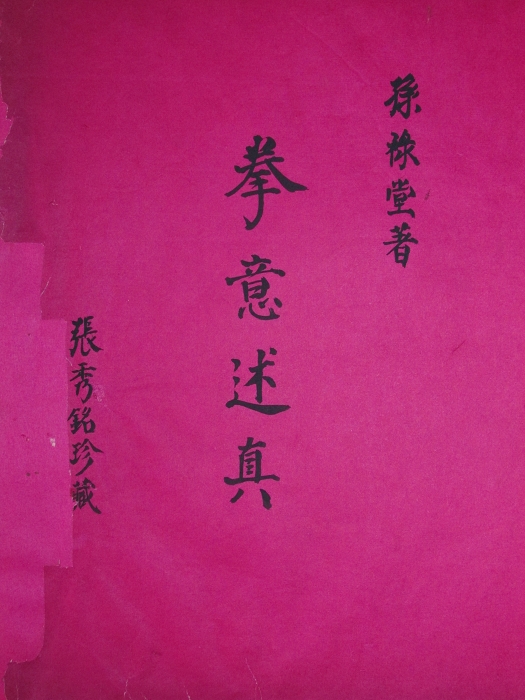 孫祿堂著
拳意述真
張秀銘珍藏